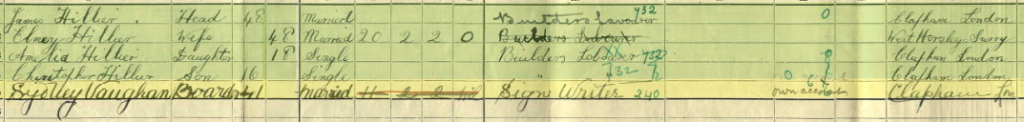 James Hillier. Head 48 Married Builders Labourer 732 0 Clapham London
Hillier Wife 48 Married 20 2 2 0 Builders West Horsley Surry
Amelia Hillier Daughter 18 Single Builders Labourer 732 0 Clapham London
Christopher Hillier Son 16 Single 732 Clapham London
Vaughan Boarder 41 Married 11 2 2 nil Sign Writer 240 own account Clapham Lon